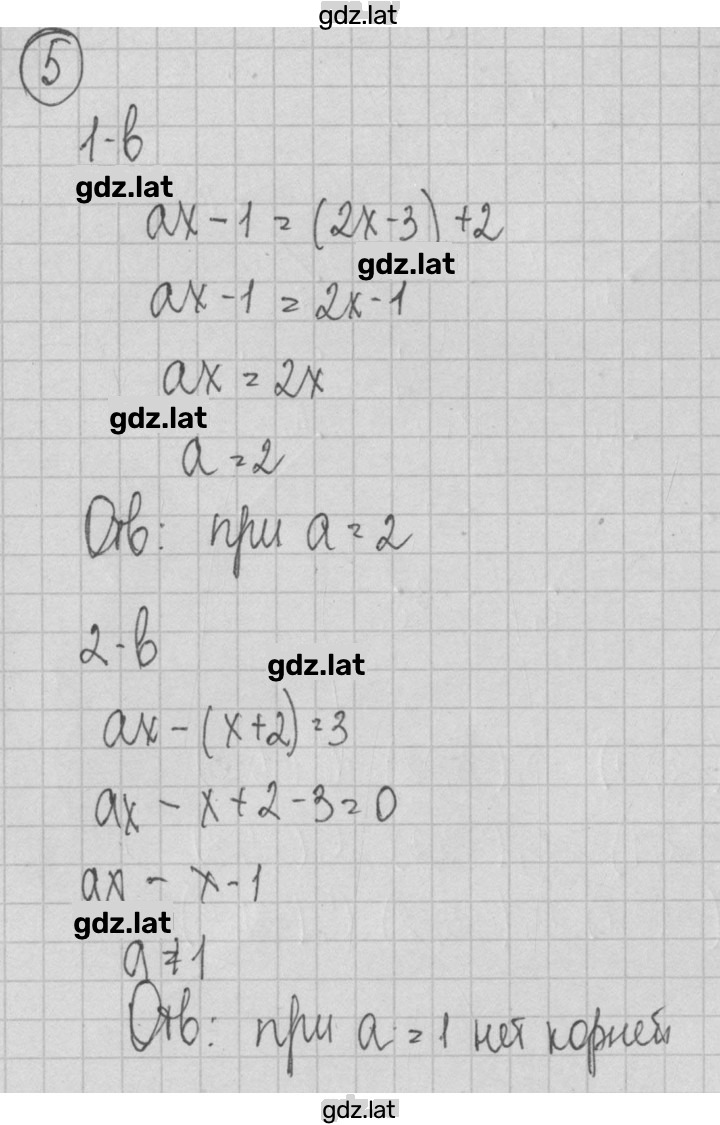 gdz.lat
5
1-в
gdz.lat
ax - 1 = (2x-3) + 2
gdz.lat
ax - 1 = 2x - 1
ax = 2x
gdz.lat
a = 2
Отв: при a = 2
2-в
gdz.lat
ax - (x+2) = 3
ax - x + 2 - 3 = 0
ax - x - 1
gdz.lat
a ≠ 1
Отв: при a = 1 нет корней
gdz.lat